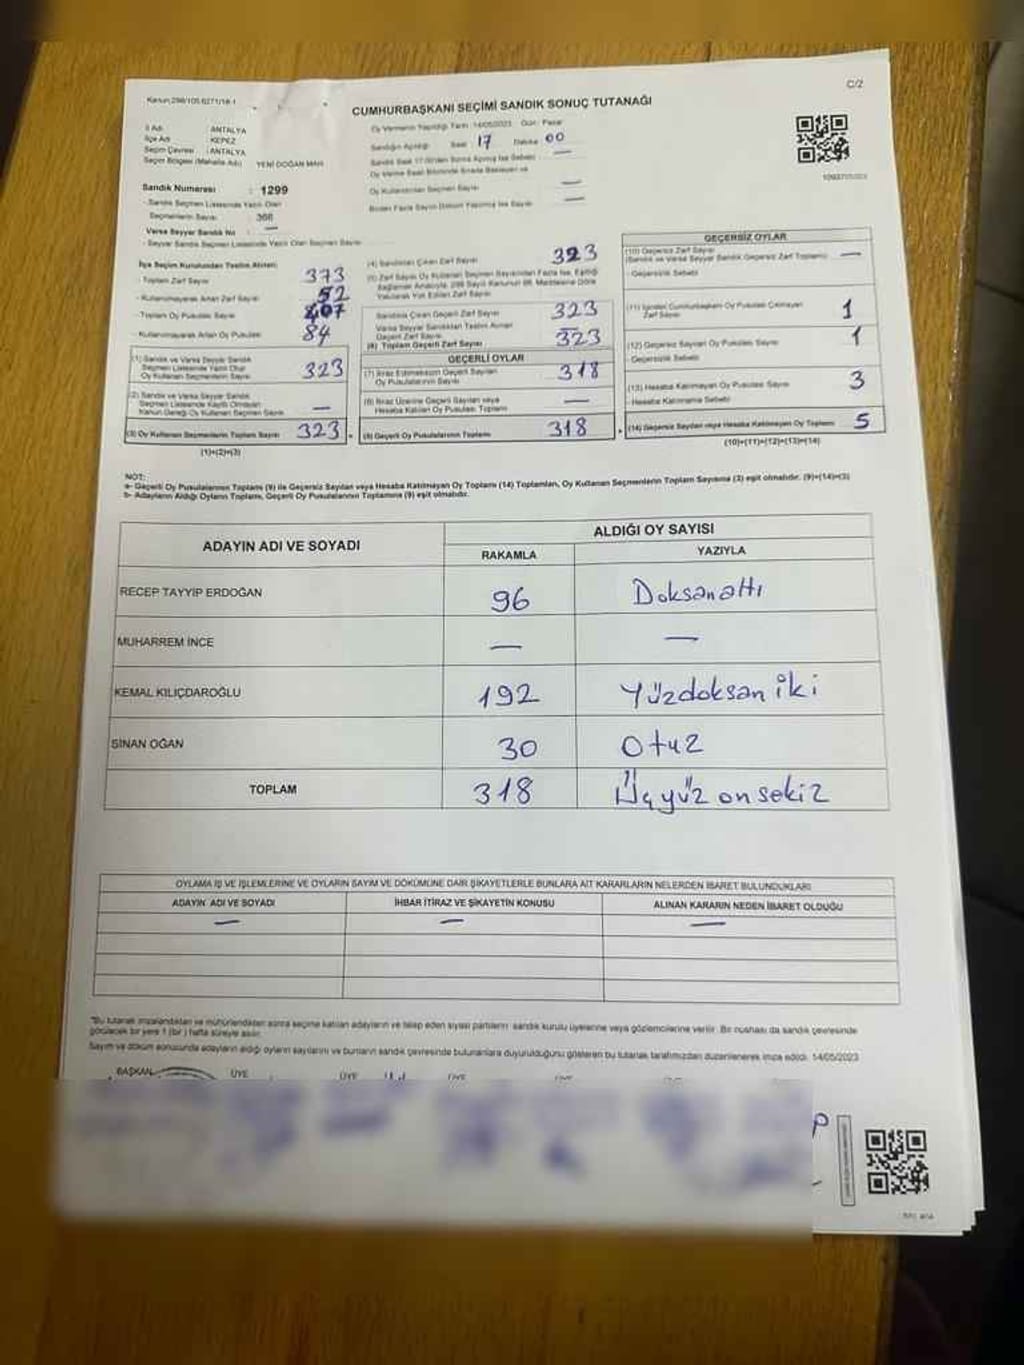 C/2
Kanun:298/105.6271/18-1
CUMHURBAŞKANI SEÇİMİ SANDIK SONUÇ TUTANAĞI
İl Adı : ANTALYA
İlçe Adı : KEPEZ
Seçim Çevresi : ANTALYA
Seçim Bölgesi (Mahalle Adı) YENİ DOĞAN MAH
Sandık Numarası : 1299
- Sandık Seçmen Listesinde Yazılı Olan
Seçmenlerin Sayısı 368
Varsa Seyyar Sandık No : —
- Seyyar Sandık Seçmen Listesinde Yazılı Olan Seçmen Sayısı
Oy Vermenin Yapıldığı Tarih :14/05/2023 Gün : Pazar
Sandığın Açıldığı Saat : 17 Dakika 00
Oy Kullandırılan Seçmen Sayısı —
Birden Fazla Sayım Döküm Yapılmış İse Sayısı —
İlçe Seçim Kurulundan Teslim Alınan:
- Toplam Zarf Sayısı 373
- Kullanılmayarak Artan Zarf Sayısı 52
- Toplam Oy Pusulası Sayısı 407
- Kullanılmayarak Artan Oy Pusulası 84
(1) Sandık ve Varsa Seyyar Sandık
Seçmen Listesinde Yazılı Olup
Oy Kullanan Seçmenlerin Sayısı 323
(2) Sandık ve Varsa Seyyar Sandık
Seçmen Listesinde Kayıtlı Olmayan
Kanun Gereği Oy Kullanan Seçmenlerin Sayısı —
(3) Oy Kullanan Seçmenlerin Toplam Sayısı 323
(1)+(2)=(3)
(4) Sandıktan Çıkan Zarf Sayısı 323
(5) Zarf Sayısı Oy Kullanan Seçmen Sayısından Fazla İse, Eşitliği
Sağlamak Amacıyla, 298 Sayılı Kanunun 98. Maddesine Göre
Yakılarak Yok Edilen Zarf Sayısı
Sandıkta Çıkan Geçerli Zarf Sayısı 323
Varsa Seyyar Sandıktan Teslim Alınan
Geçerli Zarf Sayısı
(6) Toplam Geçerli Zarf Sayısı 323
GEÇERLİ OYLAR
(7) İtiraz Edilmeksizin Geçerli Sayılan
Oy Pusulalarının Sayısı 318
(8) İtiraz Üzerine Geçerli Sayılan veya
Hesaba Katılan Oy Pusulası Toplamı —
(9) Geçerli Oy Pusulalarının Toplamı 318
GEÇERSİZ OYLAR
(10) Geçersiz Zarf Sayısı
(Sandık ve Varsa Seyyar Sandık Geçersiz Zarf Toplamı) —
- Geçersizlik Sebebi
(11) İçinden Cumhurbaşkanı Oy Pusulası Çıkmayan
Zarf Sayısı 1
(12) Geçersiz Sayılan Oy Pusulası Sayısı 1
- Geçersizlik Sebebi
(13) Hesaba Katılmayan Oy Pusulası Sayısı 3
- Hesaba Katılmama Sebebi
(14) Geçersiz Sayılan veya Hesaba Katılmayan Oy Toplamı 5
(10)+(11)+(12)+(13)=(14)
NOT:
a- Geçerli Oy Pusulalarının Toplamı (9) ile Geçersiz Sayılan veya Hesaba Katılmayan Oy Toplamı (14) Toplamları, Oy Kullanan Seçmenlerin Toplam Sayısına (3) eşit olmalıdır. (9)+(14)=(3)
b- Adayların Aldığı Oyların Toplamı, Geçerli Oy Pusulalarının Toplamına (9) eşit olmalıdır.
ADAYIN ADI VE SOYADI
ALDIĞI OY SAYISI
RAKAMLA YAZIYLA
RECEP TAYYİP ERDOĞAN 96 Doksanaltı
MUHARREM İNCE — —
KEMAL KILIÇDAROĞLU 192 Yüzdoksan iki
SİNAN OĞAN 30 Otuz
TOPLAM 318 Üçyüz onsekiz
OYLAMA İŞ VE İŞLEMLERİNE VE OYLARIN SAYIM VE DÖKÜMÜNE DAİR ŞİKAYETLERLE BUNLARA AİT KARARLARIN NELERDEN İBARET BULUNDUKLARI
ADAYIN ADI VE SOYADI İHBAR İTİRAZ VE ŞİKAYETİN KONUSU ALINAN KARARIN NEDEN İBARET OLDUĞU
— — —
"Bu tutanak imzalandıktan ve mühürlendikten sonra seçime katılan adayların ve talep eden siyasi partilerin sandık kurulu üyelerine veya gözlemcilerine verilir. Bir nüshası da sandık çevresinde
görülecek bir yere 1 (bir) hafta süreyle asılır.
Sayım ve döküm sonucunda adayların aldığı oyların sayılarını ve bunların sandık çevresinde bulunanlara duyurulduğunu gösteren bu tutanak tarafımızdan düzenlenerek imza edildi. 14/05/2023
BAŞKAN ÜYE ÜYE ÜYE